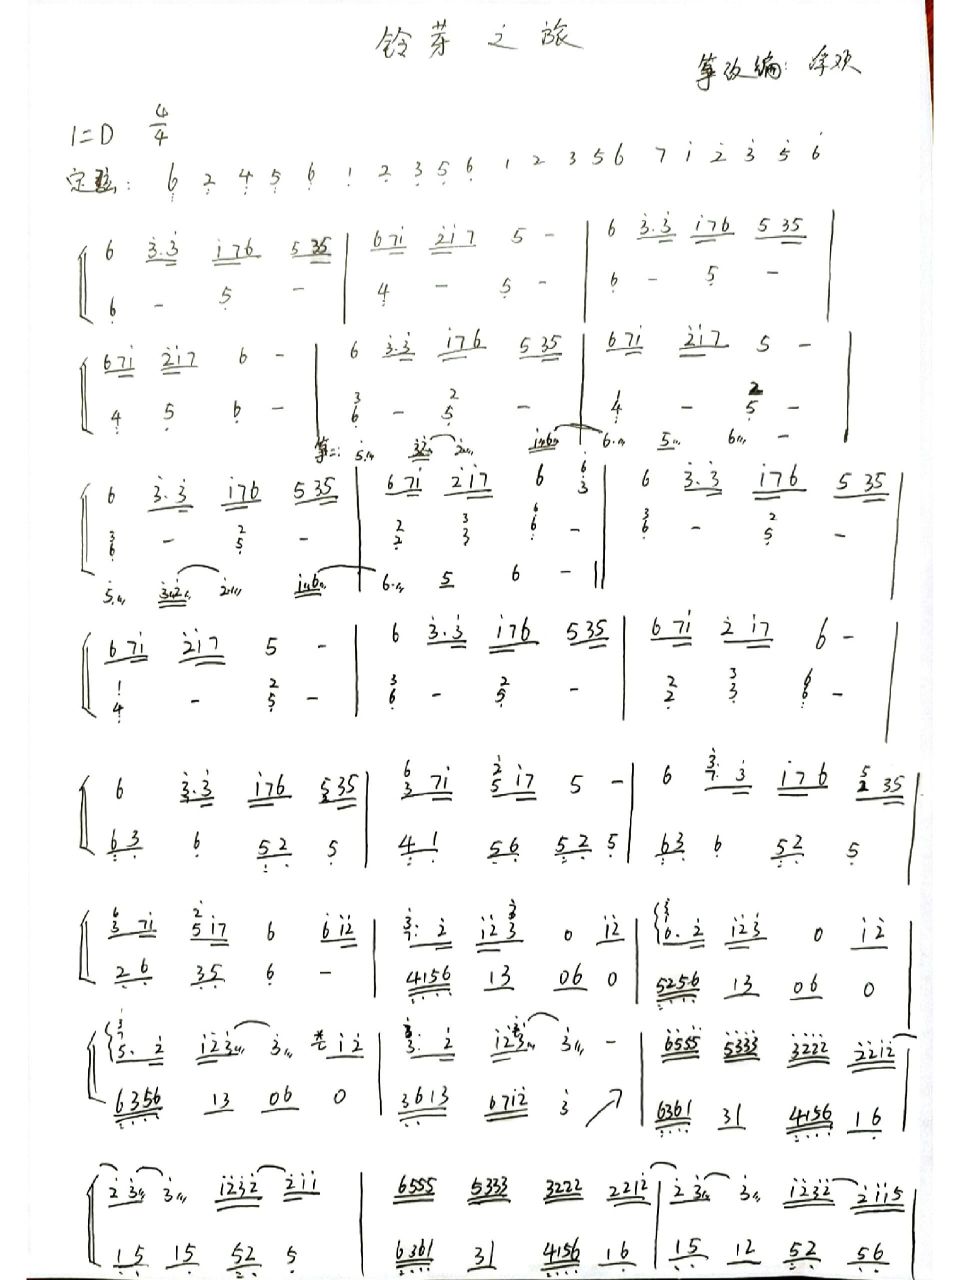 铃芽之旅
筝改编: 
1=D 4/4
定弦: 6 2 4 5 6 1 2 3 5 6 1 2 3 5 6 7 i 2 3 5 6
6 3.3 i76 535 | 67i 2i7 5 - | 6 3.3 i76 535 |
6 - 5 - | 4 - 5 - | 6 - 5 - |
67i 2i7 6 - | 6 3.3 i76 535 | 67i 2i7 5 - |
3 2 1 2
4 5 6 - | 6 - 5 - | 4 - 5 - |
筝二: 5. 32 2 i6 6. 5 6 -
6 3.3 i76 535 | 67i 2i7 6 6/3 | 6 3.3 i76 535 |
3 2 2 3 6 3 2
6 - 5 - | 2 3 6 - | 6 - 5 - |
5. 32 2 i6 6. 5 6 - ||
67i 2i7 5 - | 6 3.3 i76 535 | 67i 2i7 6 - |
1 2 3 2 2 3 6
4 - 5 - | 6 - 5 - | 2 3 6 - |
6 3.3 i76 535 | 6/3 7i 2/5 i7 5 - | 6 3/7. 3 i76 5/2 35 |
63 6 52 5 | 41 56 52 5 | 63 6 52 5 |
6/3 7i 2/5 i7 6 6i2 | 3/7. 2 i23 0 i2 | 6. 2 i23 0 i2 |
26 35 6 - | 4156 13 06 0 | 5256 13 06 0 |
5. 2 i23 3 i2 | 3. 2 i23 3 - | 6555 5333 3222 22i2 |
6356 13 06 0 | 3613 67i2 3 | 6361 31 4156 16 |
23 3 i232 2ii | 6555 5333 3222 22i2 | 23 3 i232 2ii5
15 15 52 5 | 6361 31 4156 16 | 15 12 52 56